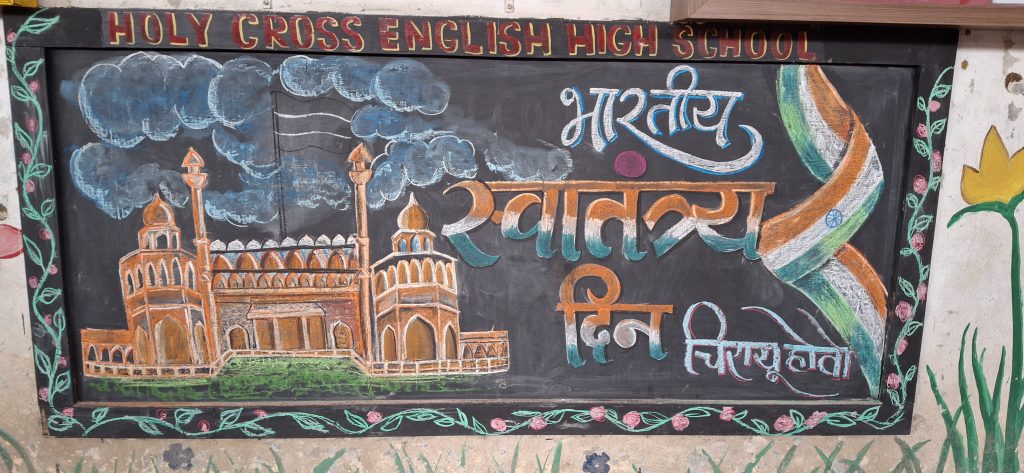 HOLY CROSS ENGLISH HIGH SCHOOL
भारतीय
स्वातंत्र्य
दिन
चिरायू होवो